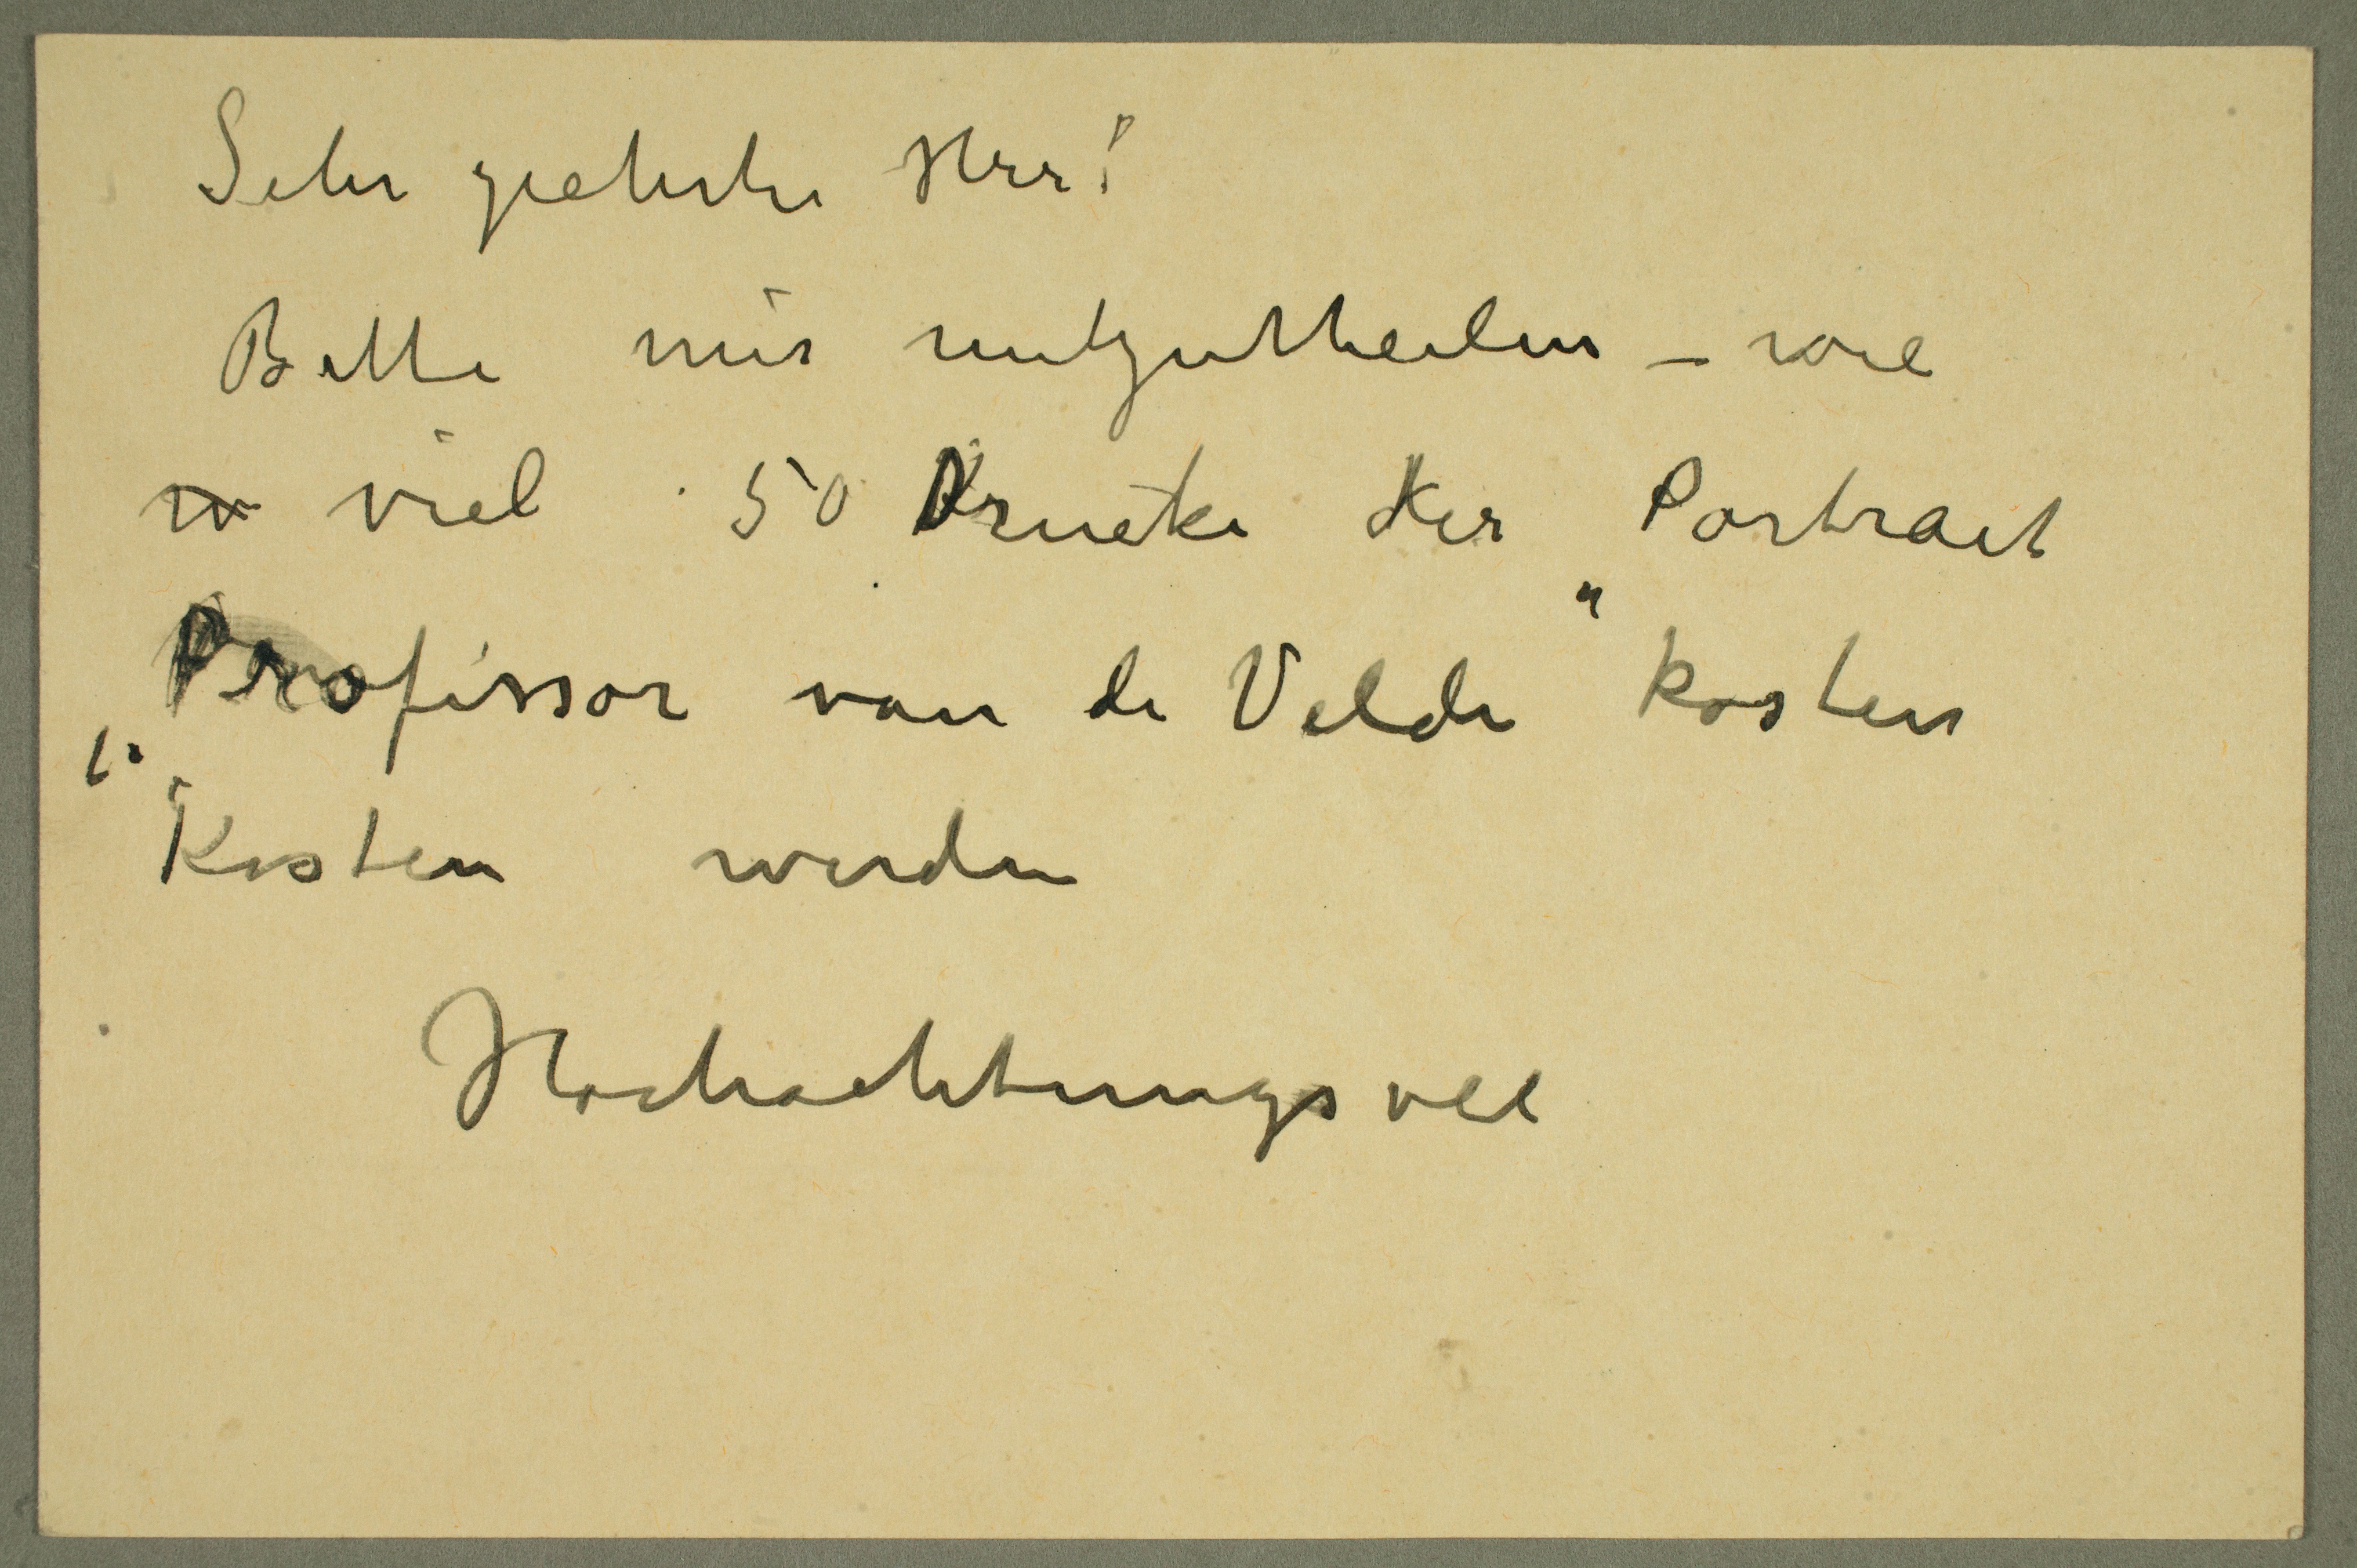 Sehr geehrter Herr!
Bitte mir mitzutheilen – wie
w viel 50 Drucke der Portrait
„Professor van de Velde“ kosten
Kosten werden
Hochachtungsvll